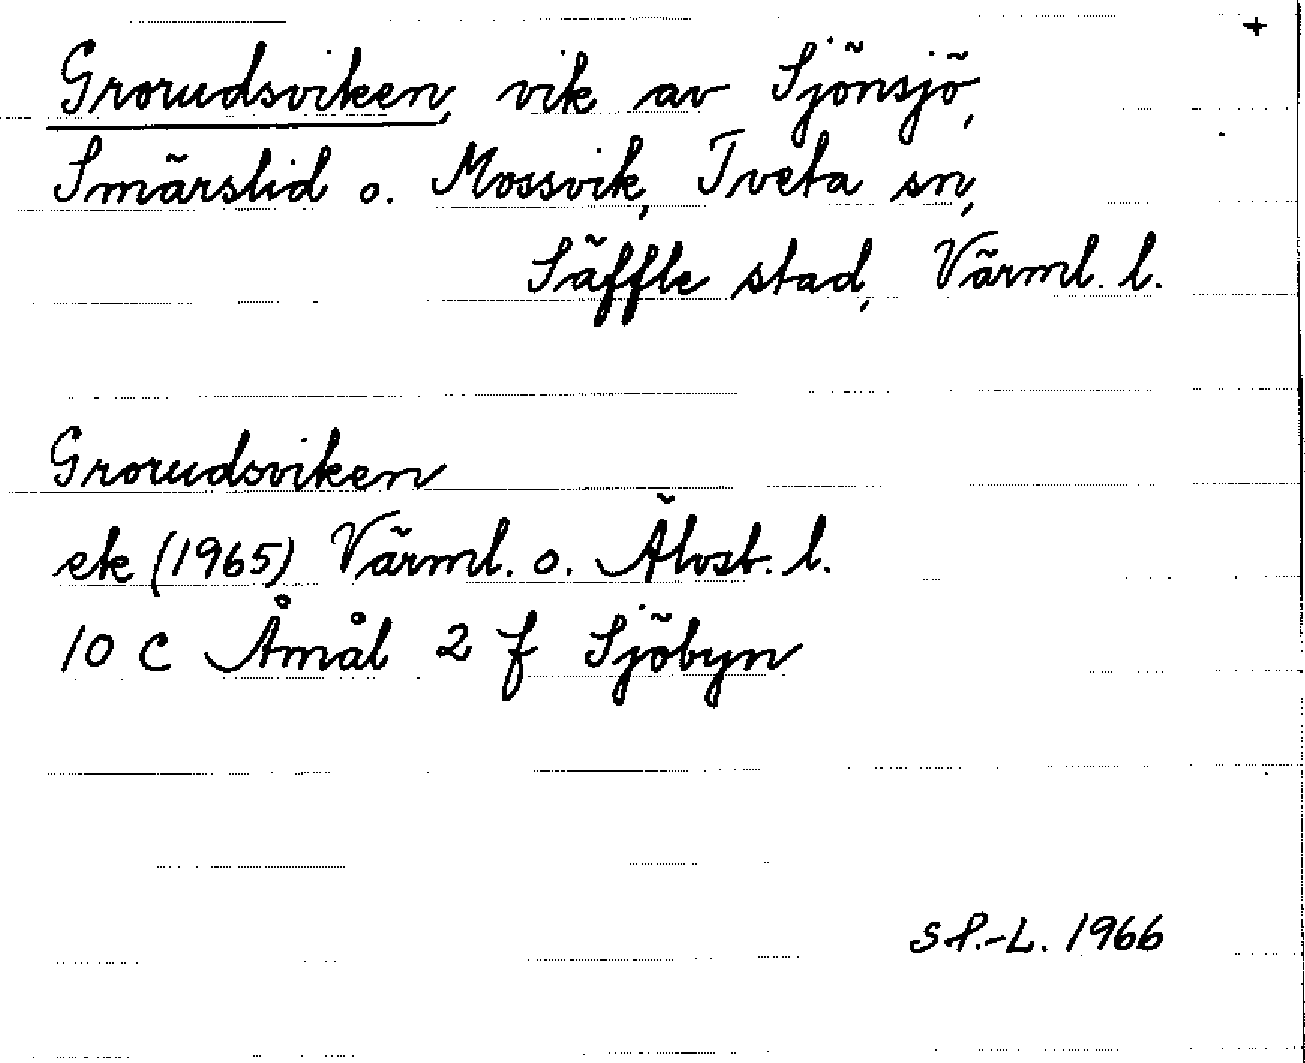 +
Grorudsviken, vik av Sjönsjö,
Smärslid o. Mossvik, Tveta sn,
Säffle stad, Värml. l.
Grorudsviken
ek (1965) Värml. o. Älvsb. l.
10 C Åmål 2 f Sjöbyn
S P.-L. 1966